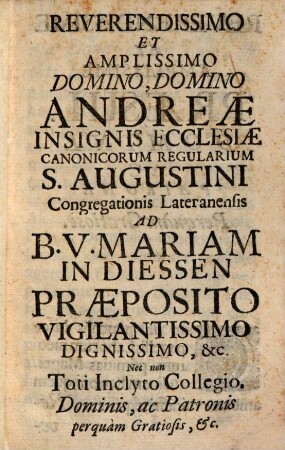 REVERENDISSIMO
ET
AMPLISSIMO
DOMINO, DOMINO
ANDREÆ
INSIGNIS ECCLESIÆ
CANONICORUM REGULARIUM
S. AUGUSTINI
Congregationis Lateranensis
AD
B. V. MARIAM
IN DIESSEN
PRÆPOSITO
VIGILANTISSIMO
DIGNISSIMO, &c.
Nec non
Toti Inclyto Collegio.
Dominis, ac Patronis
perquàm Gratiosis, &c.